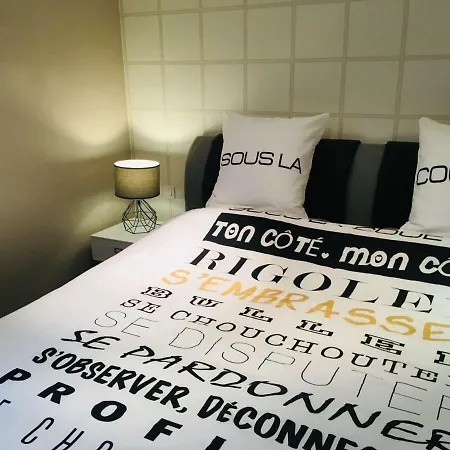 SOUS LA
COU
TON CÔTÉ, MON CÔ
RIGOLE
S'EMBRASSE
BULLE
SE CHOUCHOUTE
SE DISPUTER
SE PARDONNER
S'OBSERVER, DÉCONNE
PROFI